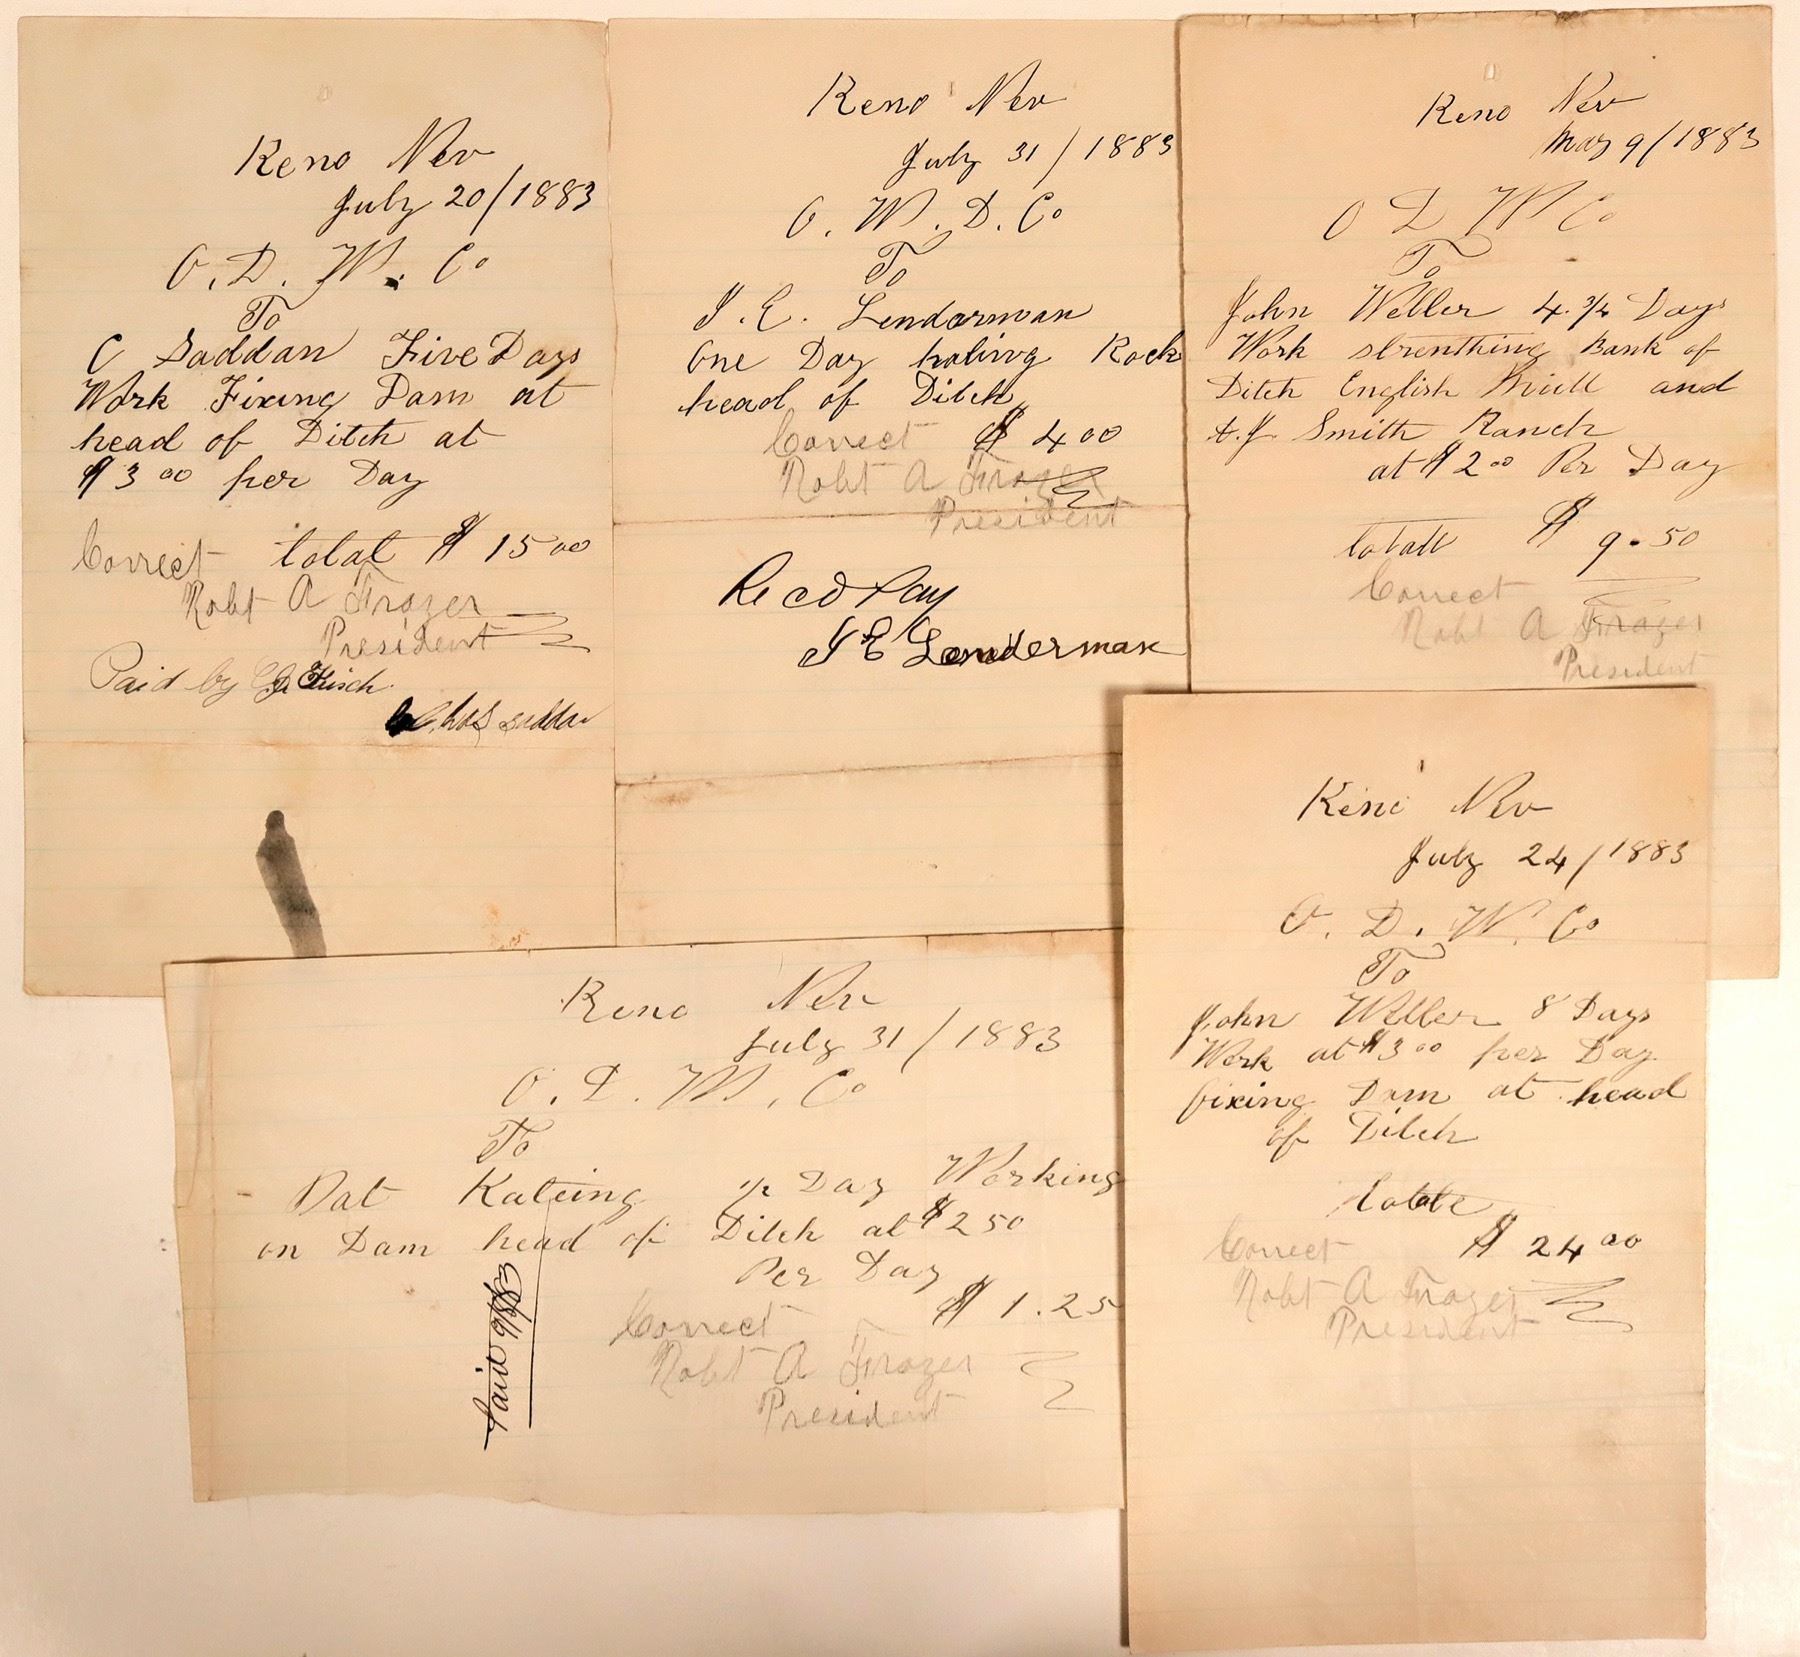 Reno Nev
July 20/1883
O. D. W. Co
To
C Saddan Five Days
Work Fixing Dam at
head of Ditch at
$3 00 per Day
Correct total $ 15 00
Robt A Frazer
President
Paid by
Chas Saddan
Reno Nev
July 31/1883
O. W. D. Co
To
J. E. Lendarman
One Day haling Rock
head of Ditch
Correct $ 4 00
Robt A Frazer
President
Recd Pay
J E Lenderman
Reno Nev
May 9/1883
O D W Co
To
John Weller 4. 3/4 Days
Work strenthing Bank of
Ditch English Mill and
A.J. Smith Ranch
at $2 00 Per Day
totall $ 9.50
Correct
Robt A Frazer
President
Reno Nev
July 31/1883
O. D. W. Co
To
Pat Kateing 1/2 Day Working
on Dam head of Ditch at $2 50
Per Day
$ 1.25
Correct
Robt A Frazer
President
Paid
Reno Nev
July 24/1883
O. D. W. Co
To
John Weller 8 Days
Work at $3 00 per Day
fixing Dam at head
of Ditch
totale
Correct $ 24 00
Robt A Frazer
President